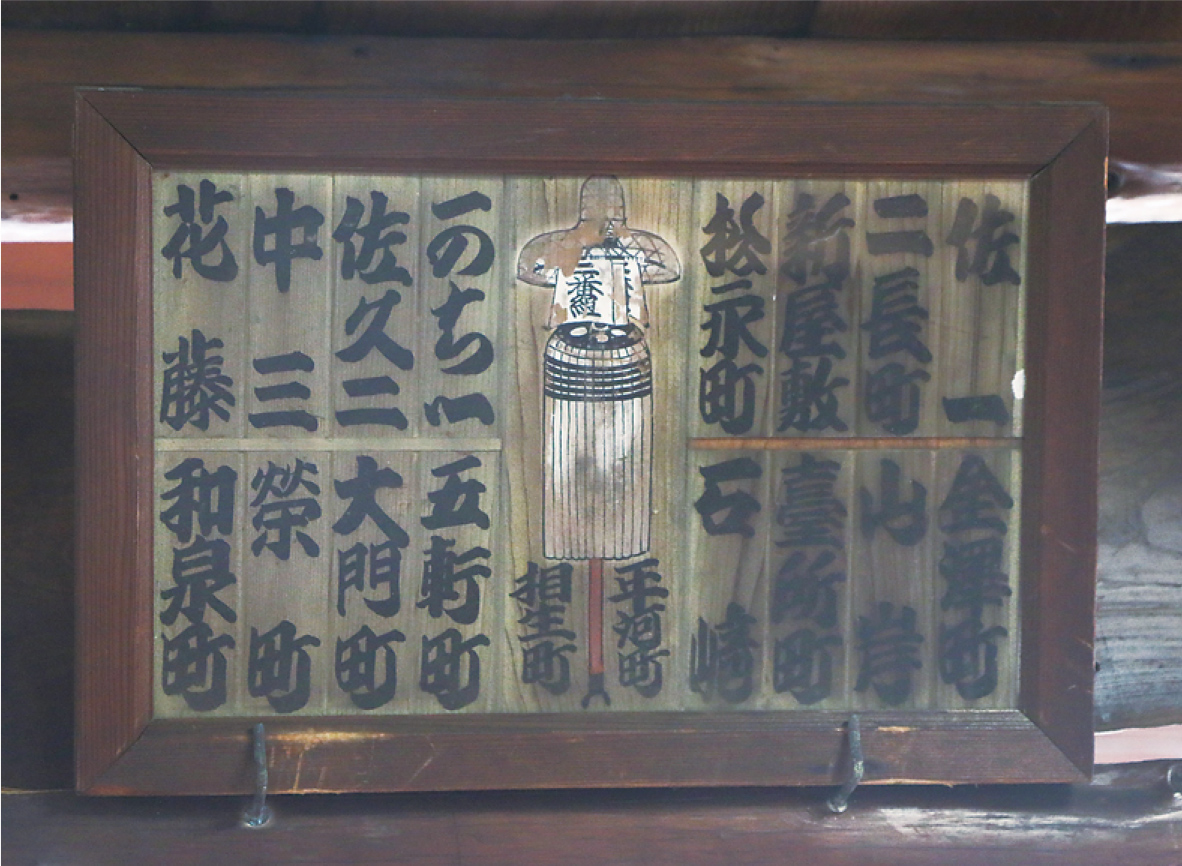 佐一
二長町
新屋敷
松永町
番組
一のちい
佐久二
中三
花藤
金澤町
山岸
臺所町
石崎
平河町
相生町
五軒町
大門町
榮町
和泉町